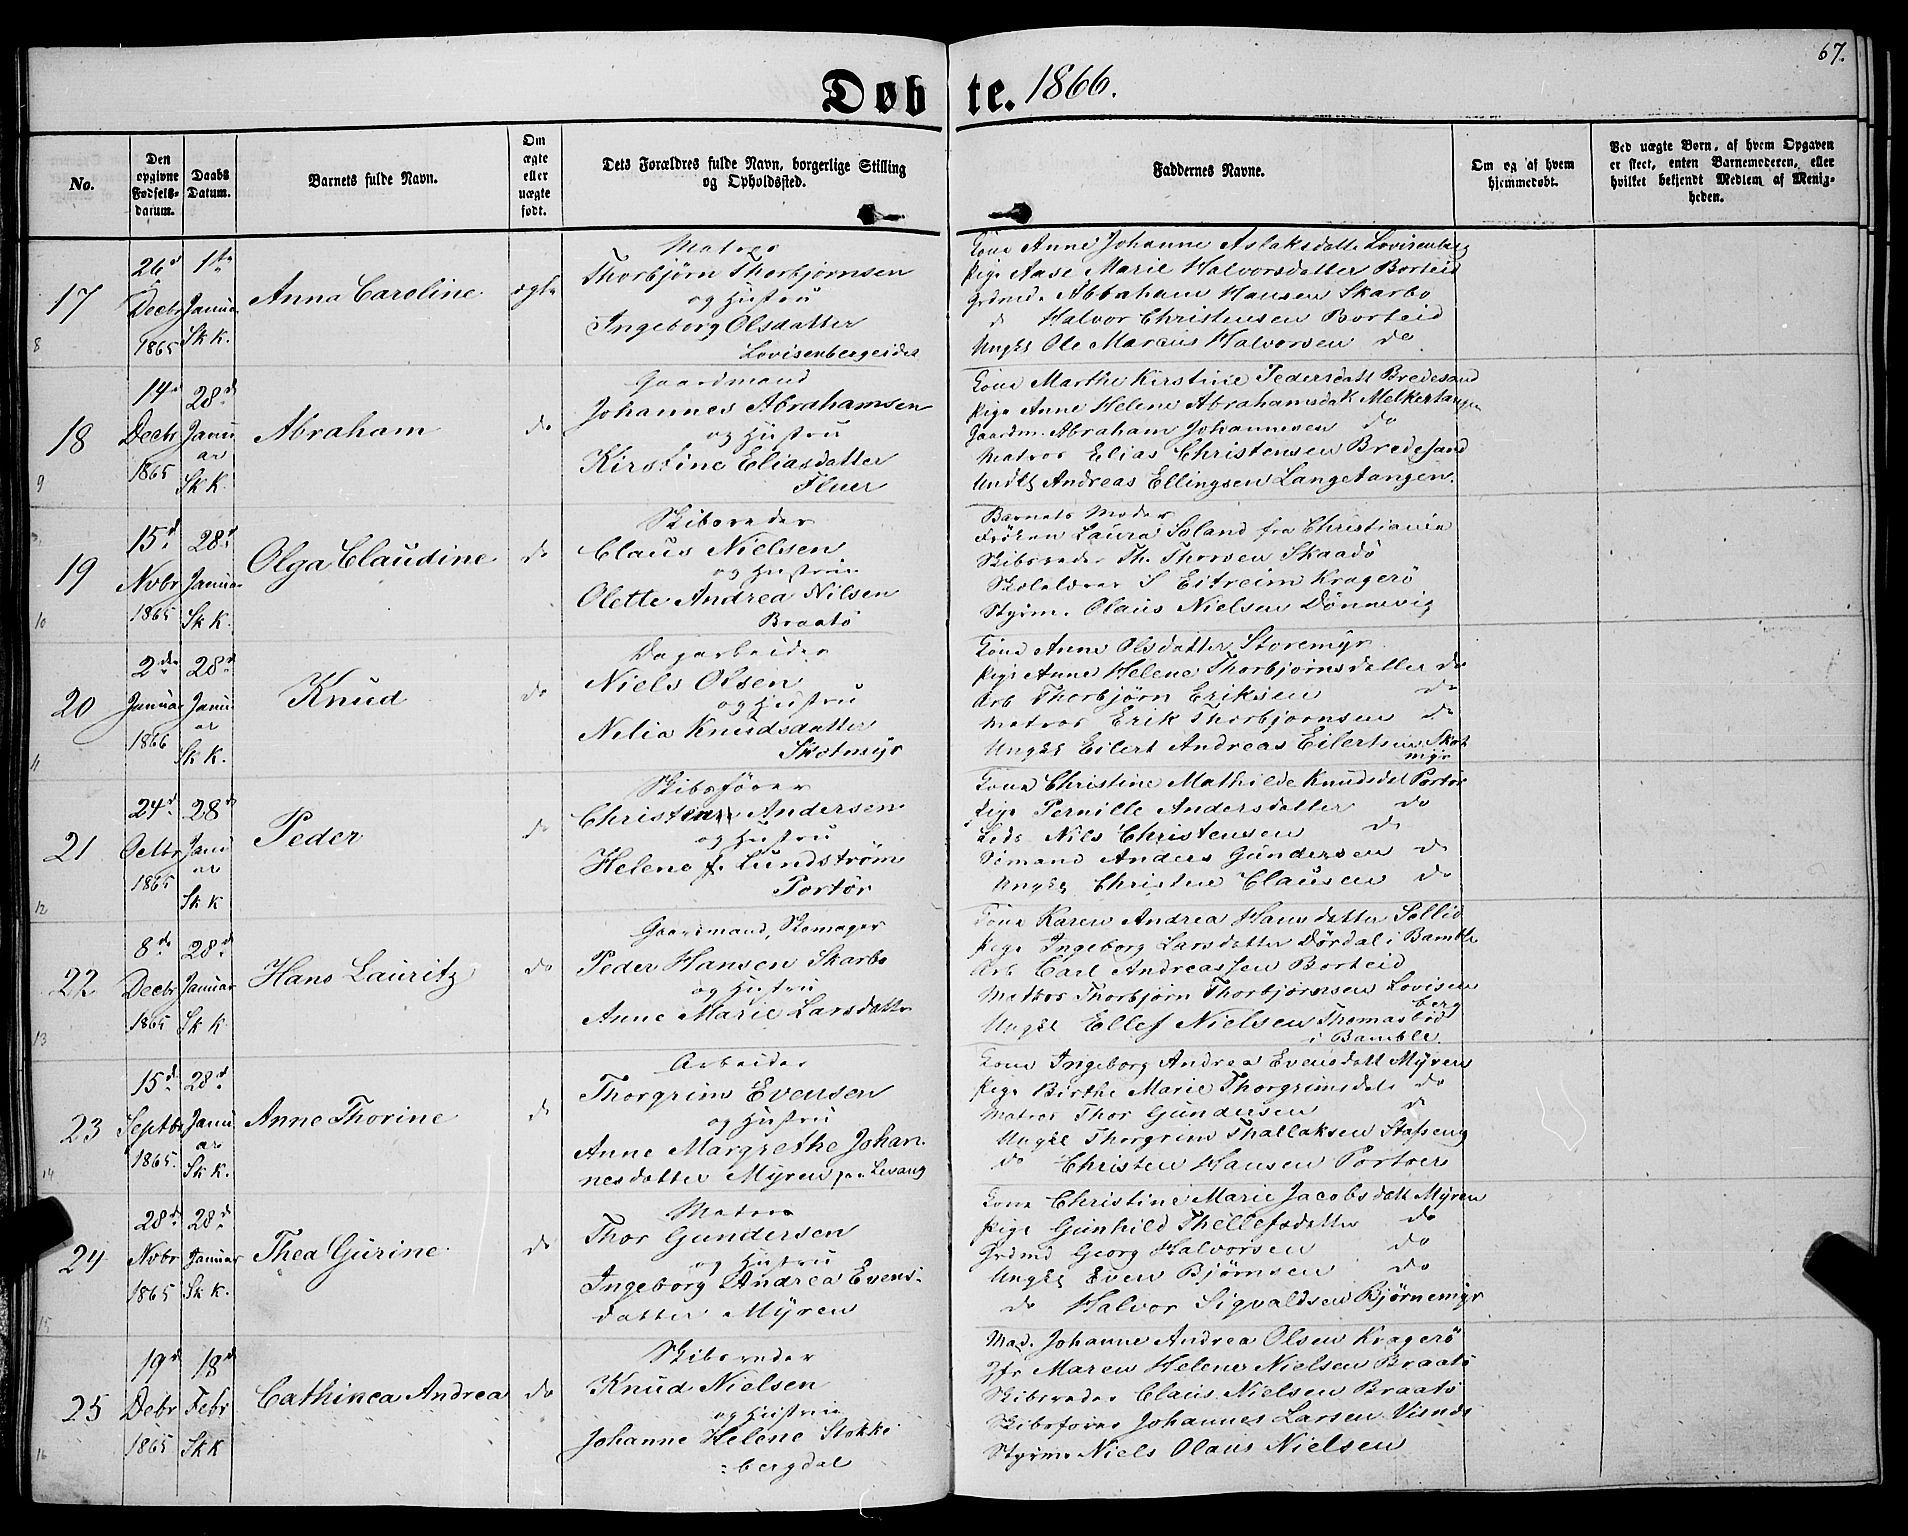 67.
Døbte. 1866.
No.
Den opgivne Fødsels-datum.
Daabs Datum.
Barnets fulde Navn.
Om ægte eller uægte født.
Dets Forældres fulde Navn, borgerlige Stilling og Opholdssted.
Faddernes Navne.
Om og af hvem hjemmedøbt.
Ved uægte Børn, af hvem Opgaven er skeet, enten Barnemoderen, eller hvilket bekjendt Medlem af Menigheden.
17
8
26d Decbr 1865
1ste Januar Sk K.
Anna Caroline
ægte
Matros
Thorbjørn Thorbjørnsen
og Hustru
Ingeborg Olsdatter
Lovisenbergeidet
Kone Anne Johanne Aslaksdatte Lovisenberg
Pige Aase Marie Halvorsdatter Borteid
Grdmd. Abbraham Hansen Skarbo
d Halvor Christensen Borteid
Ungkl Ole Marcus Halvorsen do
18
9
14d Decbr 1865
28d Januar Sk K.
Abraham
do
Gaardmand
Johannes Abrahamsen
og Hustru
Kirstine Eliasdatter
Fluer
Kone Marthe Kirstine Pedersdatt Bredesand
Pige Anne Helene Abrahamsdatt Melkertangen
Gaardm. Abraham Johannesen do
Matros Elias Christensen Bredesand
Undkl Andreas Ellingsen Langetangen.
19
10
15d Novbr 1865
28d Januar Sk K.
Olga Claudine
do
Skibsreder
Claus Nielsen
og Hustru
Olette Andrea Nilsen
Braatø
Barnets Moder
Frøken Laura Soland fra Christiania
Skibsreder Th. Thorsen Skaadø
Skolelærer S Eitreim Kragerø
Styrm. Olaus Nielsen Dønnevig
20
11
2den Januar 1866
28d Januar Sk K.
Knud
do
Dagarbeider
Niels Olsen
og Hustru
Nelia Knudsdatter
Skotmyr
Kone Anne Olsdatter Storemyr
Pige Anne Helene Thorbjørnsdatter do
Arb Thorbjørn Eriksen do
Matros Erik Thorbjørnsen do
Ungkl Eilert Andreas Eilertsen Skotmyr
21
12
24d Octbr 1865
28d Januar Sk K
Peder
do
Skibsfører
Christian Andersen
og Hustru
Helene f. Lundstrøm
Portør
Kone Christine Mathilde Knudsdat Portør
Pige Pernille Andersdatter do
Lods Nils Christensen do
Sømand Anders Gundersen do
Ungkl Christen Clausen do
22
13
8de Decbr 1865
28d Januar Sk K
Hans Lauritz
do
Gaardmand, Skomager
Peder Hansen Skarbo
og Hustru
Anne Marie Larsdatter
Kone Karen Andrea Hansdatter Sollid
Pige Ingeborg Larsdatter Dørdal i Bamble
Arb Carl Andreassen Borteid
Matros Thorbjørn Thorbjørnsen Lovisenberg
Ungkl Ellef Nielsen Thomasbød
i Bamble
23
14
15d Septbr 1865.
28d Januar Sk K.
Anne Thorine
do
Arbeider
Thorgrim Evensen
og Hustru
Anne Margrethe Johannesdatter Myren paa Levang
Kone Ingeborg Andrea Evensdatt Myren
Pige Birthe Marie Thorgrimsdatt do
Matros Thor Gundersen do
Ungkl Thorgrim Thallaksen Stafseng
do Christen Hansen Portøer
24
15
28d Novbr 1865
28d Januar Sk K.
Thea Gurine
do
Matros
Thor Gundersen
og Hustru
Ingeborg Andrea Evensdatter Myren
Kone Christine Marie Jacobsdatt Myren
Pige Gunhild Thellefsdatter do
Grdmd Georg Halvorsen do
Ungkl Even Bjørnsen do
do Halvor Sigvaldsen Bjørnemyr
25
16
19d Debr 1865
18d Febr Sk K
Cathinca Andrea
do
Skibsreder
Knud Nielsen
og Hustru
Johanne Helene Stokkebergdal
Mad. Johanne Andrea Olsen Kragerø
Jfr Maren Helene Nielsen Braatø
Skibsreder Claus Nielsen Braatø
Skibsfører Johannes Larsen Visnæs
Styrm Niels Olaus Nielsen